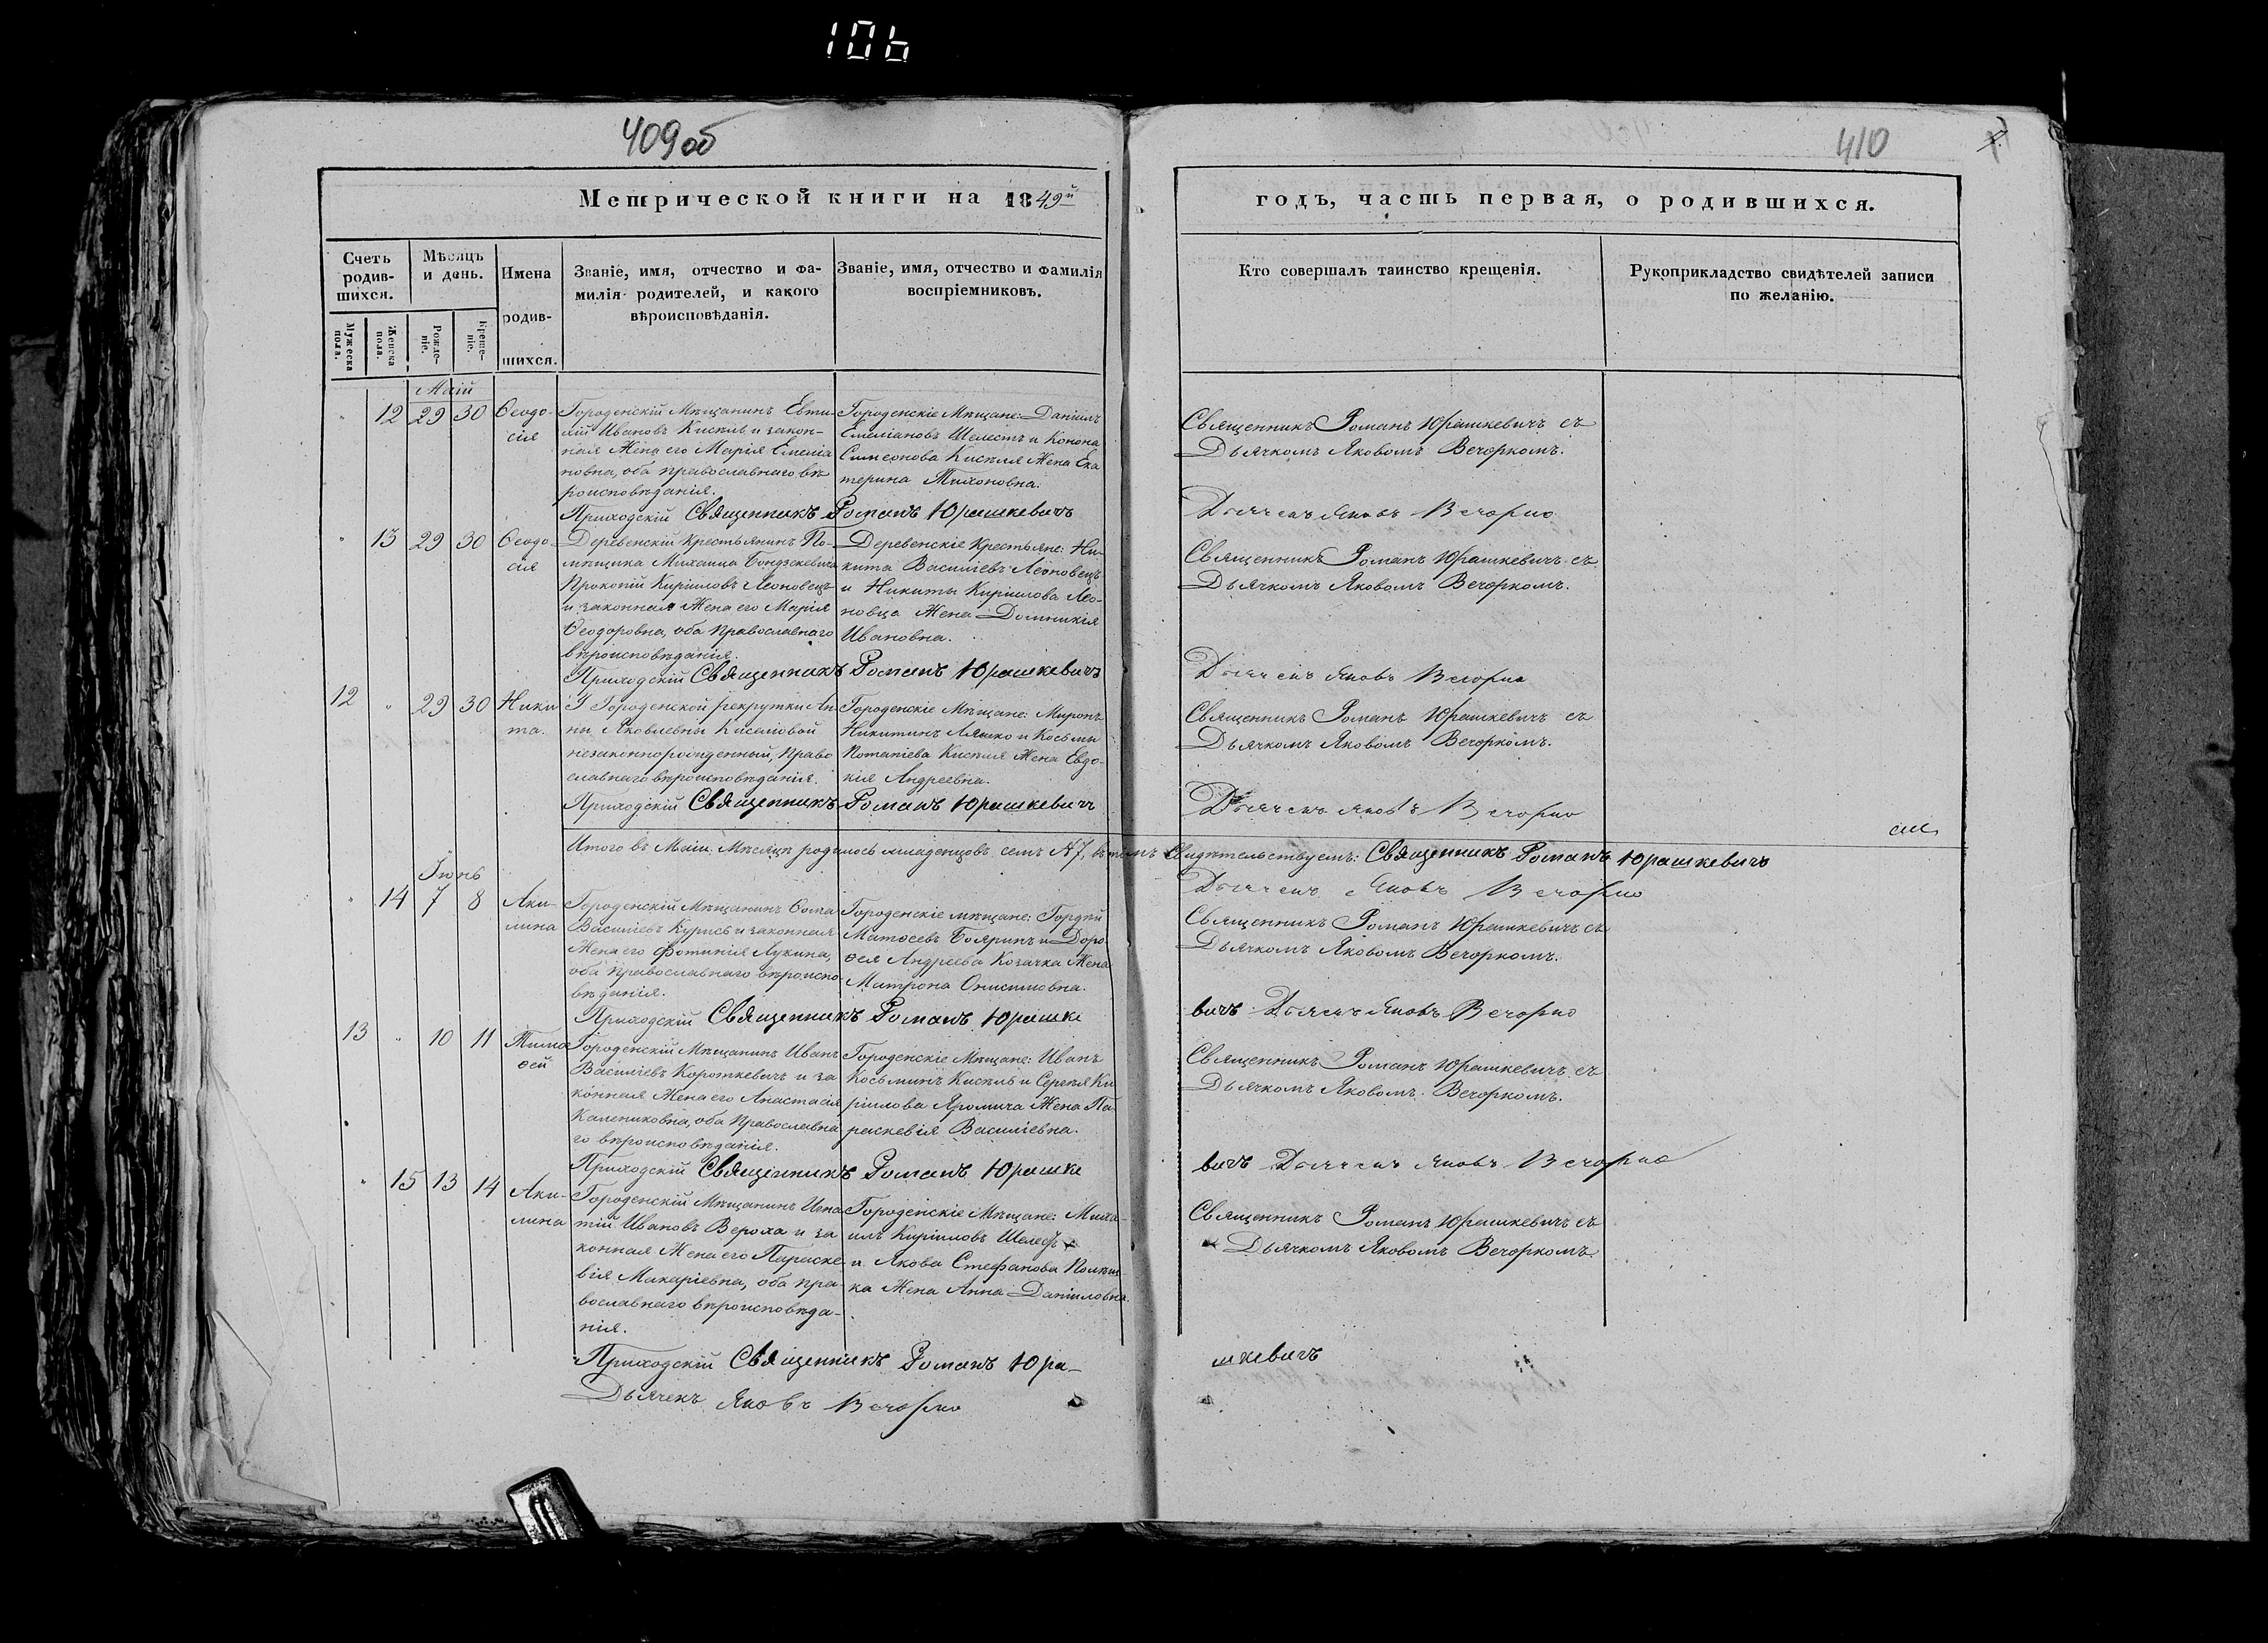 106
409 об
410
Метрической книги на 1849й
годъ, часть первая, о родившихся.
Счетъ родив-шихся.
Мѣсяцъ и день.
Имена родив-шихся.
Званіе, имя, отчество и фа-
милія родителей, и какого
вѣроисповѣданія.
Званіе, имя, отчество и фамилія
воспріемниковъ.
Кто совершалъ таинство крещенія.
Рукоприкладство свидѣтелей записи
по желанію.
Мужеска пола.
Женска пола.
Рожде-ніе.
Креще-ніе.
Маій
12 29 30 Ѳеодо-
сія
Городенскій Мѣщанинъ Евти-
мій Ивановъ Кисель и закон-
ная Жена его Марія Емеліа
новна, оба православнаго вѣ
роисповѣданія.
Городенскіе Мѣщане: Даніилъ
Емеліановъ Шелестъ и Конона
Симеонова Киселя Жена Ека
терина Тихоновна.
Священникъ Романъ Юрашкевичъ съ
Дьячкомъ Яковомъ Вечоркомъ.
Приходскій Священникъ Романъ Юрашкевичъ
Дьячекъ Яковъ Вечорко
13 29 30 Ѳеодо-
сія
Деревенскій Крестьянинъ По-
мѣщика Михаила Бондзкевича
Прокопій Кирилловъ Леоновецъ
и законная Жена его Марія
Ѳеодоровна, оба православнаго
вѣроисповѣданія.
Деревенскіе Крестьяне: Ни-
кита Василіевъ Леоновецъ
и Никиты Кириллова Лео-
новца Жена Домникія
Ивановна.
Священникъ Романъ Юрашкевичъ съ
Дьячкомъ Яковомъ Вечоркомъ.
Приходскій Священникъ Романъ Юрашкевичъ
Дьячекъ Яковъ Вечорко
12 29 30 Ники
та.
У Городенской рекрутки Ан
ны Яковлевны Киселіовой
незаконнорожденный, право
славнаго вѣроисповѣданія.
Городенскіе Мѣщане: Миронъ
Никитинъ Ляшко и Косьмы
Потапіева Киселя Жена Евдо-
кія Андреевна.
Священникъ Романъ Юрашкевичъ съ
Дьячкомъ Яковомъ Вечоркомъ.
Приходскій Священникъ Романъ Юрашкевичъ
Дьячекъ Яковъ Вечорко
Итого въ Маіи Мѣсяцѣ родилось младенцовъ семь №7, въ томъ свидѣтельствуемъ: Священникъ Романъ Юрашкевичъ
Дьячекъ Яковъ Вечорко
Іюнь
14 7 8 Аки-
лина
Городенскій Мѣщанинъ Ѳома
Василіевъ Курисъ и законная
Жена его Фотинія Лукина,
оба православнаго вѣроиспо-
вѣданія.
Городенскіе мѣщане: Гордѣй
Матѳеевъ Бояринъ и Доро
ѳея Андреева Козачка Жена
Матрона Онисимовна.
Священникъ Романъ Юрашкевичъ съ
Дьячкомъ Яковомъ Вечоркомъ.
Приходскій Священникъ Романъ Юрашке
вичъ Дьячекъ Яковъ Вечорко
13 10 11 Тимо
ѳей
Городенскій Мѣщанинъ Иванъ
Василіевъ Короткевичъ и за
конная Жена его Анастасія
Калениковна, оба Православна
го вѣроисповѣданія.
Городенскіе Мѣщане: Иванъ
Косьминъ Кисель и Сергѣя Ки
рилова Яромича Жена Па-
раскевія Василіевна.
Священникъ Романъ Юрашкевичъ съ
Дьячкомъ Яковомъ Вечоркомъ.
Приходскій Священникъ Романъ Юрашке
вичъ Дьячекъ Яковъ Вечорко
15 13 14 Аки-
лина
Городенскій Мѣщанинъ Игна
тій Ивановъ Вероха и за
конная Жена его Параске-
вія Макаріевна, оба пра-
вославнаго вѣроисповѣда-
нія.
Городенскіе Мѣщане: Миха-
илъ Кирилловъ Шелестъ
и Якова Стефанова
ка Жена Анна Даниловна.
Священникъ Романъ Юрашкевичъ съ
Дьячкомъ Яковомъ Вечоркомъ
Приходскій Священникъ Романъ Юра-
шкевичъ
Дьячекъ Яковъ Вечорко